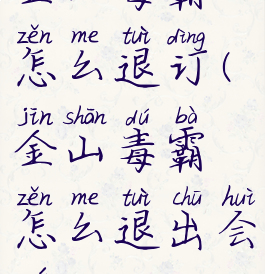 毒霸
zěn me tuì dìng
怎么退订(
jīn shān dú bà
金山毒霸
zěn me tuì chū huì
怎么退出会